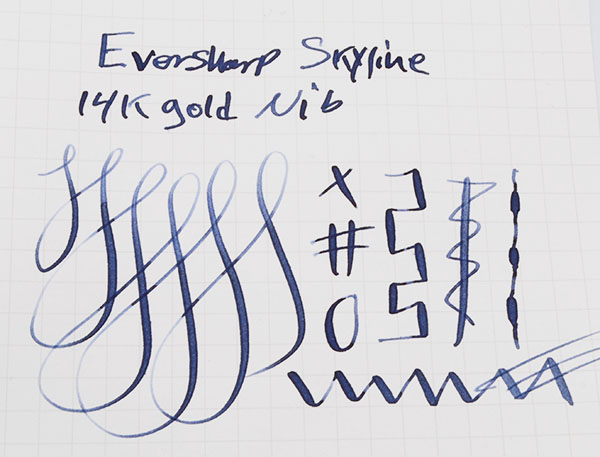 Eversharp Skyline
14K gold Nib
x
#
0